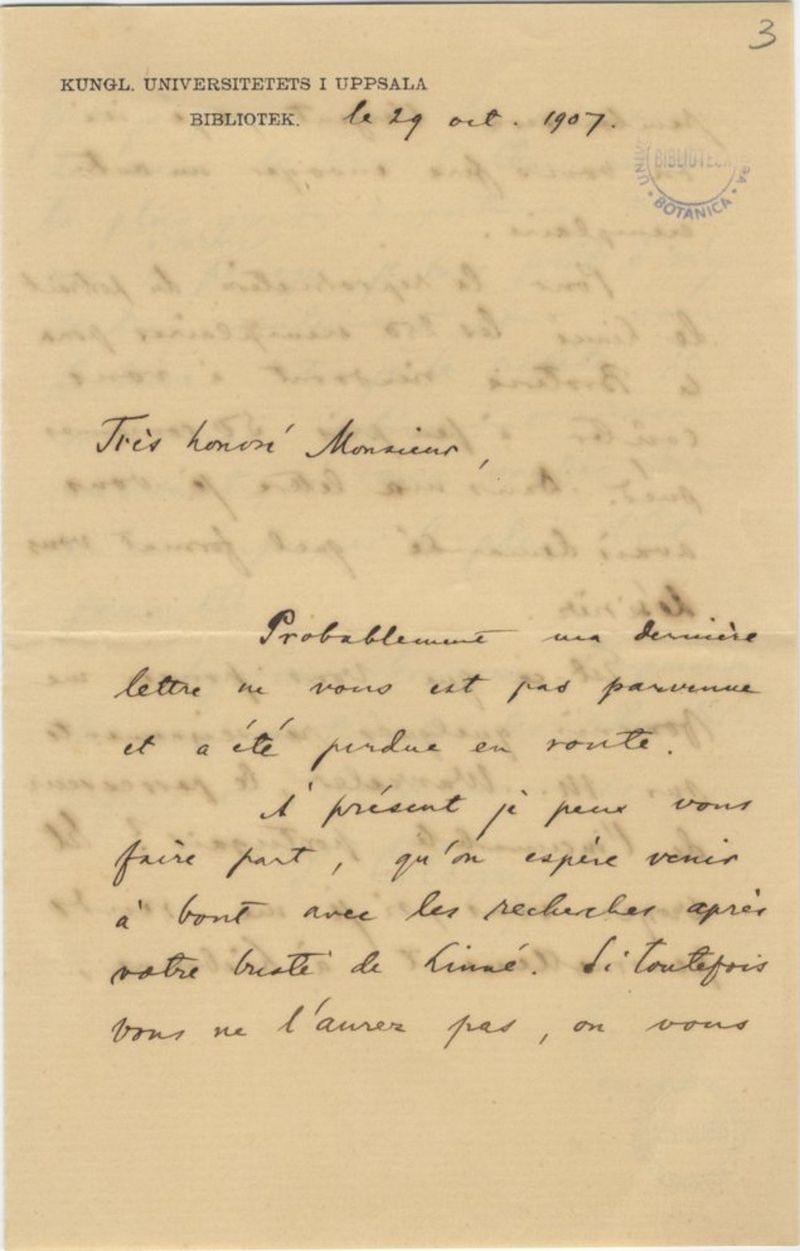 3
KUNGL. UNIVERSITETETS I UPPSALA
BIBLIOTEK. le 29 oct. 1907.
BIBLIOTECA
BOTANICA
Très honoré Monsieur,
Probablement ma dernière
lettre ne vous est pas parvenue
et a été perdue en route.
A présent je peux vous
faire part, qu'on espère venir
à bout avec les recherches après
votre buste de Linné. Si toutefois
vous ne l'aurez pas, on vous